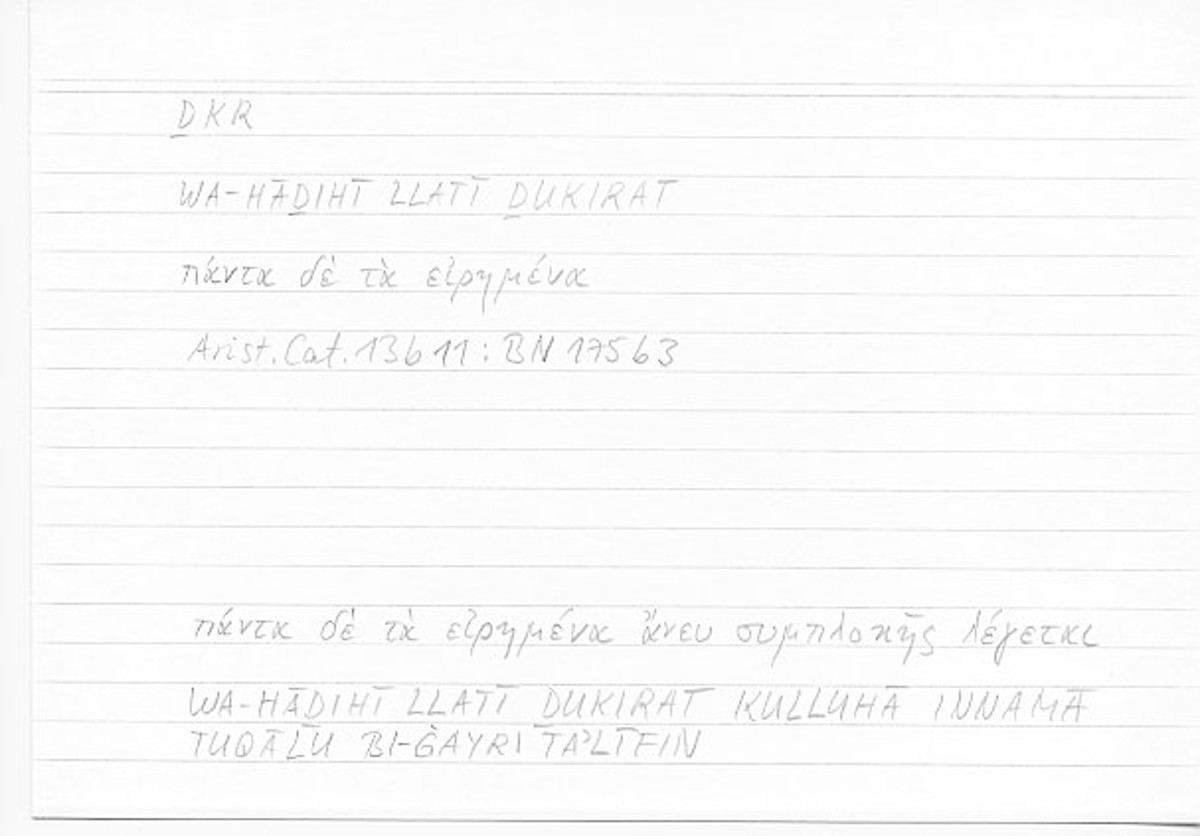 ḎKR
WA-HĀḎIHĪ LLATĪ ḎUKIRAT
πάντα δὲ τὰ εἰρημένα
Arist. Cat. 13b11: BN 175b3
πάντα δὲ τὰ εἰρημένα ἄνευ συμπλοκῆς λέγεται
WA-HĀḎIHĪ LLATĪ ḎUKIRAT KULLUHĀ INNAMĀ
TUQĀLU BI-ĠAYRI TAʾLĪFIN